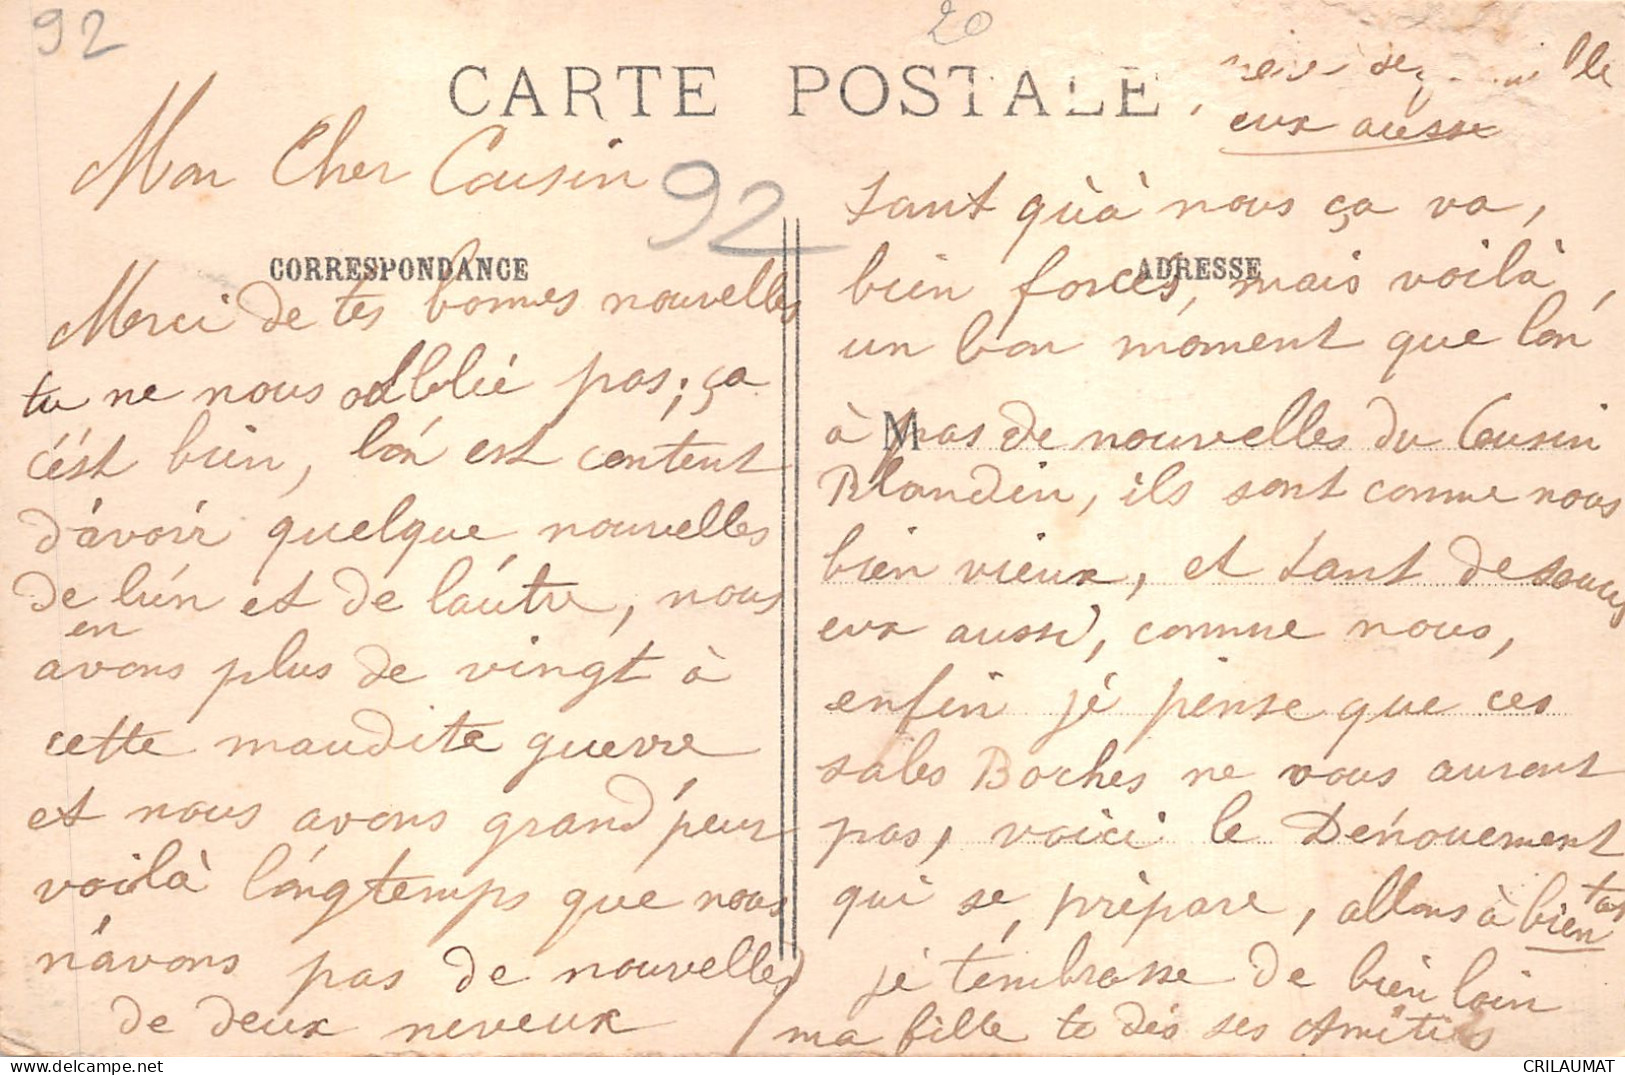 92
20
CARTE POSTALE
eux aussi
Mon Cher Cousin
92
CORRESPONDANCE
Merci de tes bonnes nouvelles
tu ne nous oublié pas; ça
c'est bien, l'on est content
d'avoir quelque nouvelles
de l'un et de l'autre, nous
en
avons plus de vingt à
cette maudite guerre
et nous avons grand'peur
voilà longtemps que nous
n'avons pas de nouvelles
de deux neveux
tant qu'à nous ça va,
ADRESSE
bien forcés, mais voilà,
un bon moment que l'on
M
à pas de nouvelles du Cousin
Blandin, ils sont comme nous
bien vieux, et tant de soucis
eux aussi, comme nous,
enfin jé pense que ces
sales Boches ne vous auront
pas, voici le Dénouement
qui se prépare, allons à bientot
jé t'embrasse de bien loin
ma fille te dés ses Amitiés
CRILAUMAT